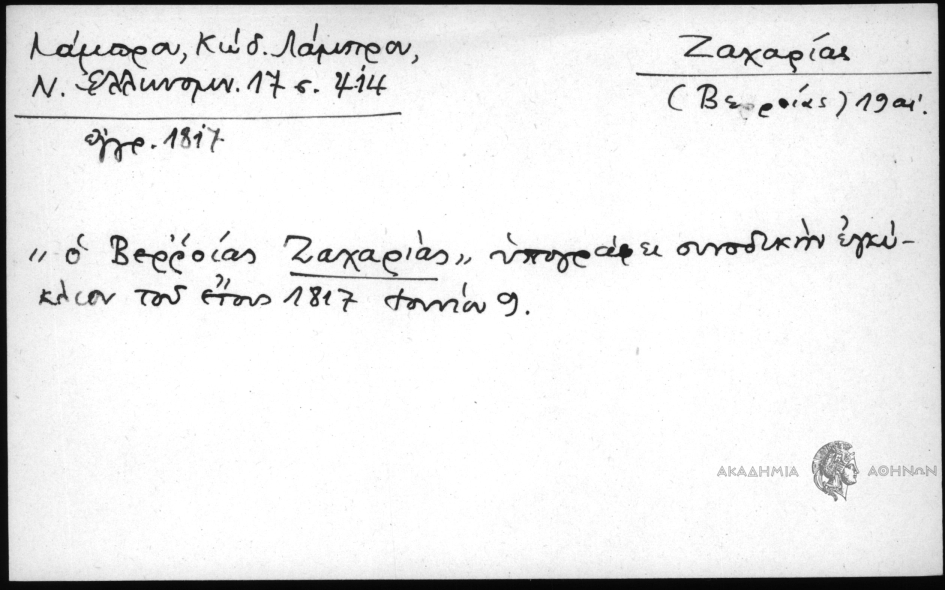 Λάμπρου, Κώδ. Λάμπρου,
Ν. Ἑλληνομν. 17 σ. 414
ἔγγρ. 1817
Ζαχαρίας
(Βερροίας) 19 αἰ.
„ ὁ Βερῥοίας Ζαχαρίας „ ὑπογράφει συνοδικὴν ἐγκύ-
κλιον τοῦ ἔτους 1817 Ἰουνίου 9.
ΑΚΑΔΗΜΙΑ ΑΘΗΝΩΝ